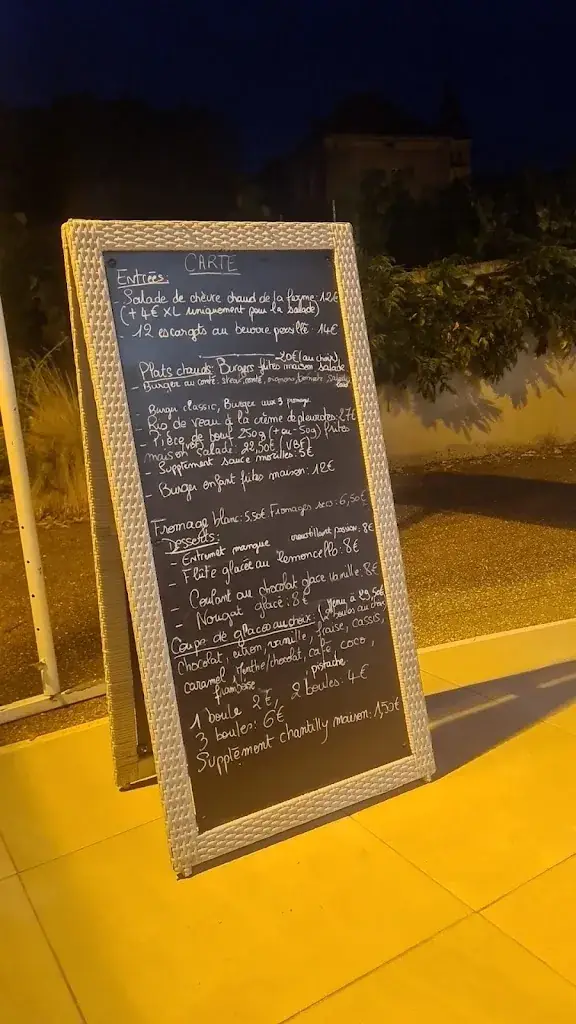 CARTE
Entrées:
- Salade de chèvre chaud de la ferme: 12€
(+ 4€ XL uniquement pour la salade)
- 12 escargots au beurre persillé: 14€
- 20€ (au choix)
Plats chauds: Burgers frites maison salade
- Burger au comté: steak, comté, oignons, tomate, salade
Burger classic, Burger aux 3 fromage
- Ris de veau à la crème de pleurotes: 27€
- Pièce de bœuf 250g (+ ou - 50g) frites
maison, salade: 22,50€ (VBF)
- Supplément sauce morilles: 5€
- Burger enfant frites maison: 12€
Fromage blanc: 5,50€ Fromages secs: 6,50€
Desserts:
- Entremet mangue croustillant passion: 8€
- Flûte glacée au lemoncello: 8€
- Coulant au chocolat glace vanille: 8€
- Nougat glacé: 8€
Menu à 29,50€
Coupe de glaces au choix: (2 boules au choix)
Chocolat, citron, vanille, fraise, cassis,
caramel, Menthe/chocolat, café, coco,
framboise pistache
1 boule 2€, 2 boules: 4€
3 boules: 6€
Supplément chantilly maison: 1,50€